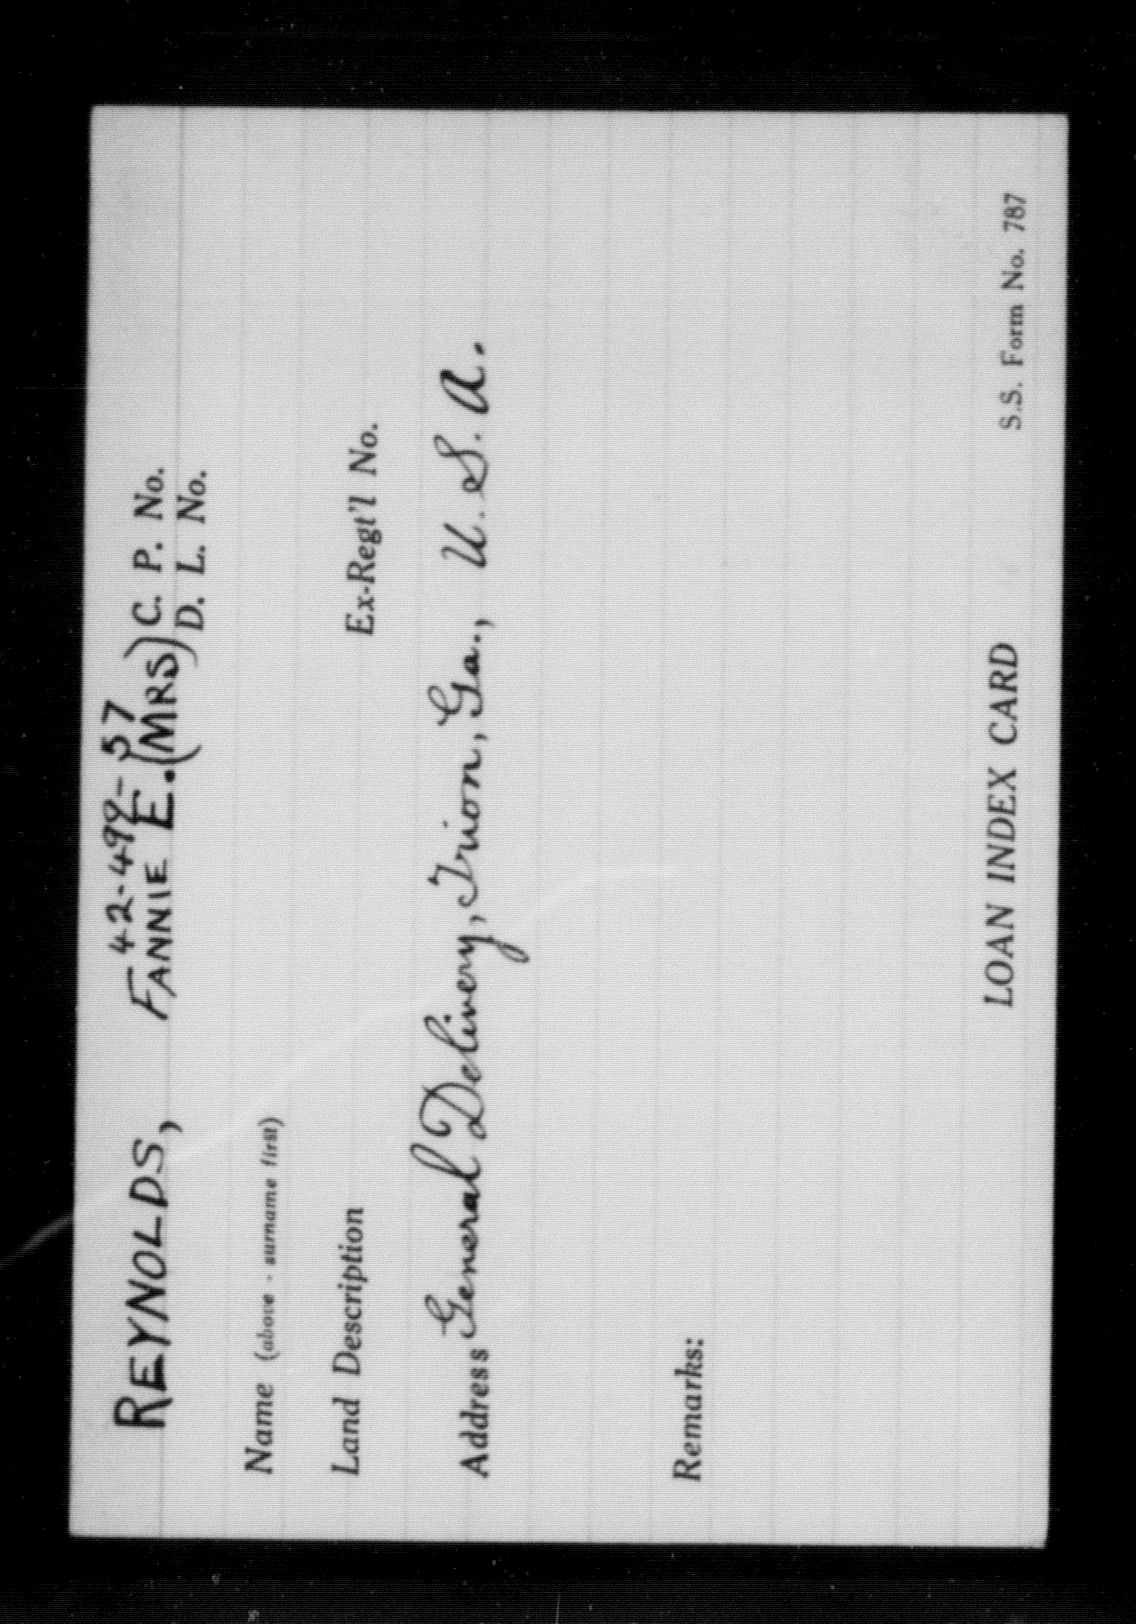 42-499-57
REYNOLDS, FANNIE E. (MRS) C. P. No.
D. L. No.
Name (above - surname first)
Land Description Ex-Regt'l No.
Address General Delivery, Trion, Ga., U. S. A.
Remarks:
LOAN INDEX CARD S.S. Form No. 787